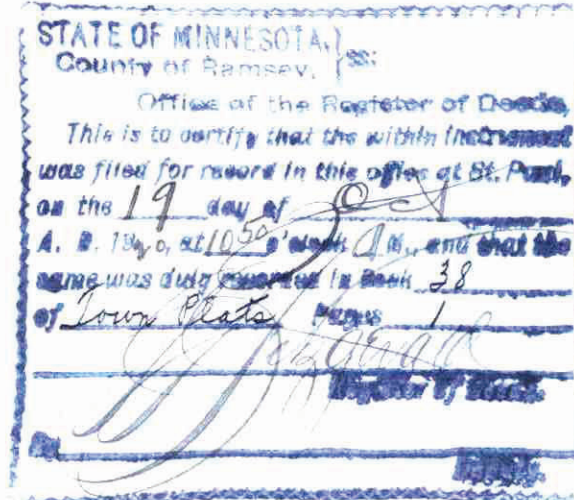 STATE OF MINNESOTA, } ss:
County of Ramsey,
Office of the Register of Deeds,
This is to certify that the within instrument
was filed for record in this office at St. Paul,
on the 19 day of Oct
A. D. 1920, at 10 50 o'clock A M., and that the
same was duly recorded in Book 38
of Town Plats Pages 1
Register of Deeds.
By
Deputy.